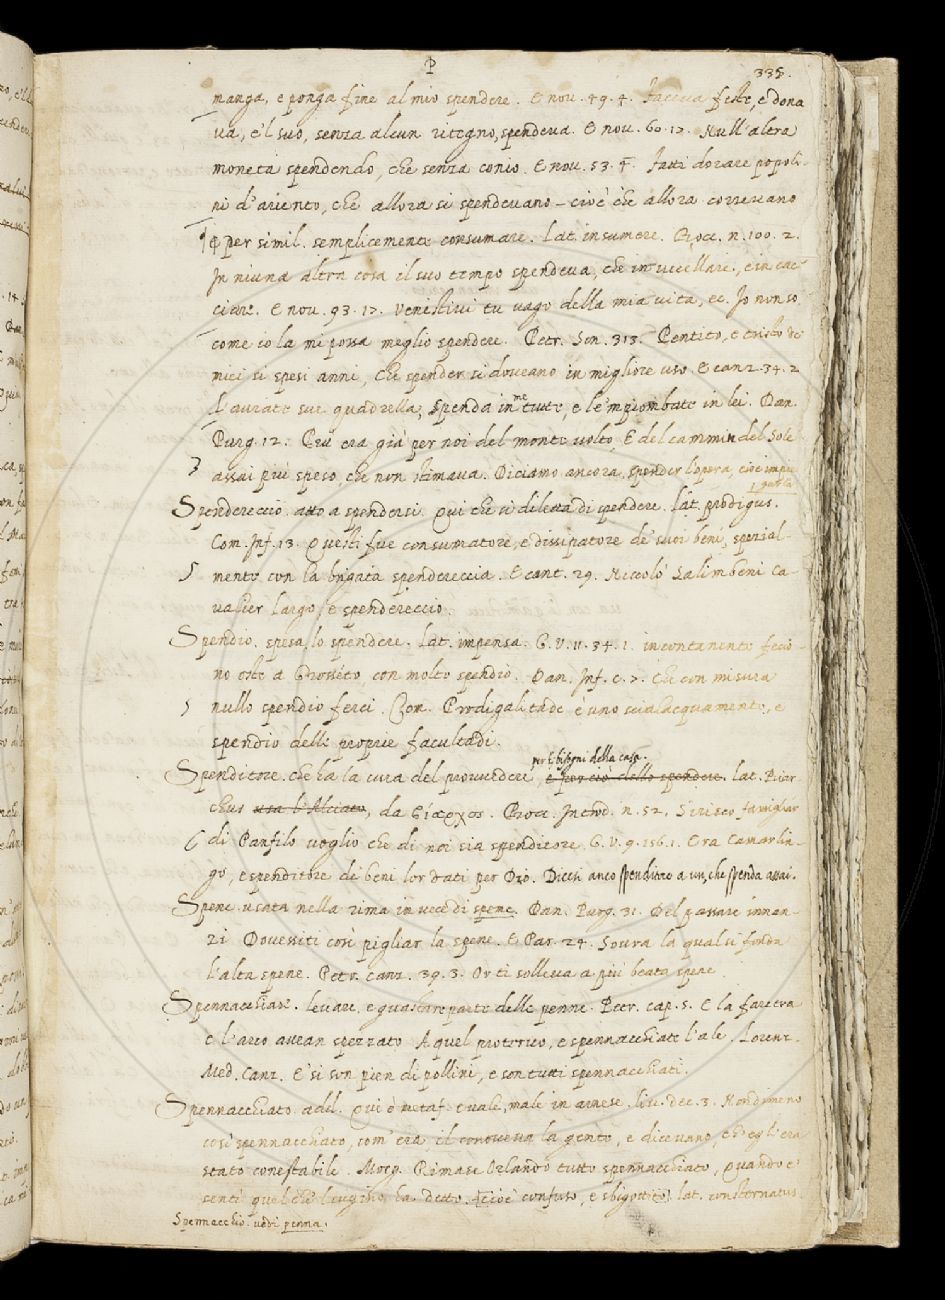 P
335.
manga, e ponga fine al mio spendere. E nov. 49. 4. Faceva feste, e dona
va, e 'l suo, senza alcun ritegno, spendeva. E nov. 60. 17. Null'altra
moneta spendendo, che senza conio. E nov. 53. 4. Fatti dorare popoli-
ni d'ariento, che allora si spendevano - cioè che allora correvano
¶ per simil. semplicemente consumare. Lat. insumere. Bocc. n. 100. 2.
In niuna altra cosa il suo tempo spendeva, che in uccellare, e in cac-
ciare. E nov. 93. 17. Venistivi tu vago della mia vita, ec. Io non so
come io la mi possa meglio spendere. Petr. Son. 313. Pentito, e tristo de'
miei sì spesi anni, Che spender si doveano in migliore uso E canz. 34. 2
L'aurate sue quadrella, Spenda in me tutte, e le 'mpiombate in lei. Dan.
Purg. 12. Più era già per noi del monte volto, E del cammin del Sole
3 assai più speso che non stimava. Diciamo ancora, spender l'opera, cioè impie
garla
Spendereccio. atto a spendersi. Qui che si diletta di spendere. Lat. prodigus.
Com. Inf. 13. Questi fue consumatore, e dissipatore de' suoi beni, spezial-
5 mente con la brigata spendereccia. E cant. 29. Niccolò Salimbeni ca-
valier largo, e spendereccio.
Spendio. spesa, lo spendere. Lat. impensa. G. V. 11. 34. 1. incontanente fecio-
no oste a Grosseto, con molto spendio. Dan. Inf. c. 7. Che con misura
5 nullo spendio ferci. Com. Prodigalitade è uno scialacquamento, e
spendio delle proprie facultadi.
per li bisogni della casa.
Spenditore. che ha la cura del provvedere, e per ciò dello spendere. lat. Prior-
chus usa l'Alciato, da Bocc. Introd. n. 52. Sirisco famigliar
6 di Panfilo voglio che di noi sia spenditore. G. V. 9. 156. 1. Era Camarlin-
go, e spenditore de' beni lor dati per Dio. Dicesi anco spenditore a un, che spenda assai.
Spene. usata nella rima in vece di speme. Dan. Purg. 31. Del passare innan-
zi Dovessiti così pigliar la spene. E Par. 24. Sovra la qual si fonda
l'alta spene. Petr. canz. 39. 3. Or ti solleva a più beata spene.
Spennacchiare. levare, e guastare parte delle penne. Petr. cap. 5. E la faretra
e l'arco avean spezzato A quel protervo, e spennacchiate l'ale. Lorenz.
Med. Canz. E' si son pien di pollini, e son tutti spennacchiati.
Spennacchiato. add. Qui è metaf. e vale, male in arnese. Liv. dec. 3. Nondimeno
così spennacchiato, com'era il conosceva la gente, e dicevano, ch'egl'era
stato conestabile. Morg. Rimase Orlando tutto spennacchiato, Quando e'
sentì quel che l'cugino ha detto. cioè confuso, e sbigottito. lat. consternatus.
Spennacchio. vedi penna.